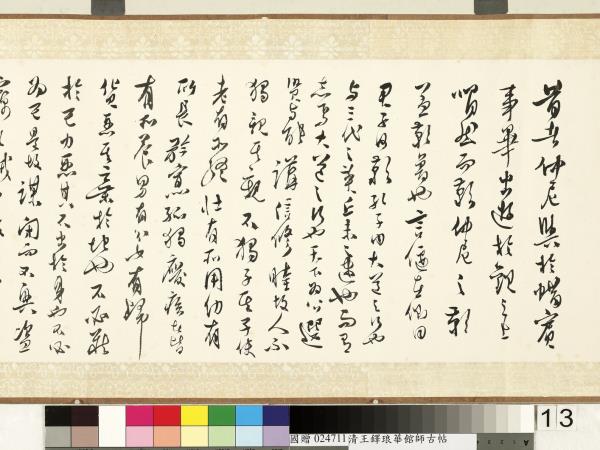 昔者仲尼與於蜡賓
事畢出遊於觀之上
喟然而歎仲尼之歎
蓋歎魯也言偃在側曰
君子何歎孔子曰大道之行也
與三代之英丘未之逮也而有
志焉大道之行也天下為公選
賢與能講信修睦故人不
獨親其親不獨子其子使
老有所終壯有所用幼有
所長矜寡孤獨廢疾者皆
有所養男有分女有歸
貨惡其棄於地也不必藏
於己力惡其不出於身也不必
為己是故謀閉而不興盜
13
國贈 024711清王鐸琅華館師古帖